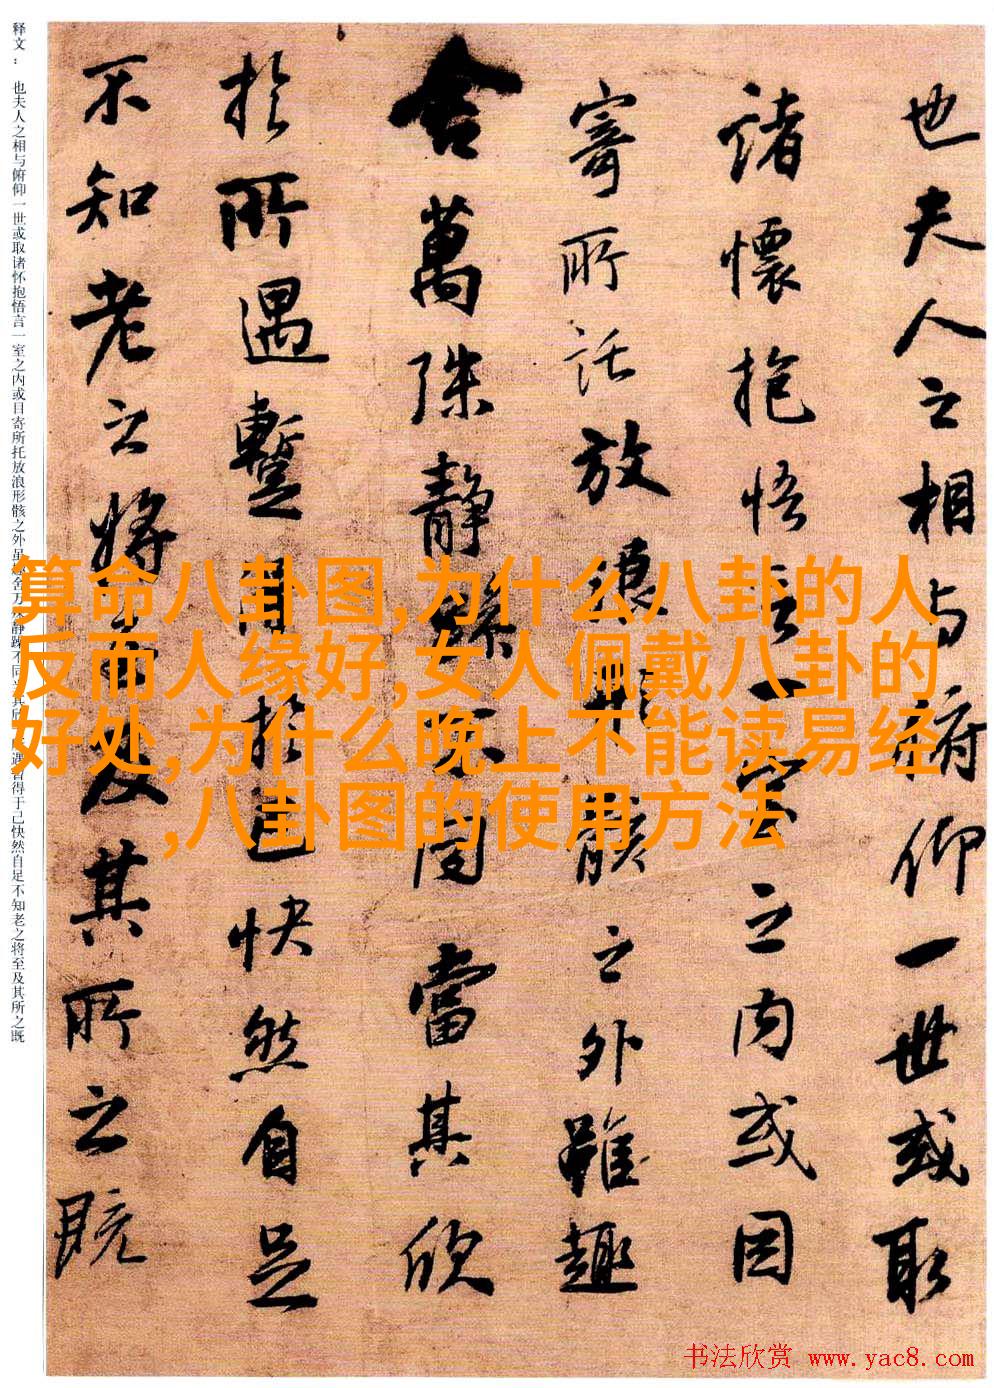 释文： 也夫人之相与俯仰一世或取诸怀抱悟言一室之内或目寄所托放浪形骸之外虽 舍 静躁不同 其欣 遇暂得于己快然自足不知老之将至及其所之既
也夫人之相与俯仰一世或取
諸懷抱悟言一室之内或因
寄所託放浪形骸之外雖趣
舍萬殊静躁不同當其欣
於所遇暫得於己快然自足
不知老之將至及其所之既
算命八卦图,为什么八卦的人
反而人缘好,女人佩戴八卦的
好处,为什么晚上不能读易经
,八卦图的使用方法
书法欣赏 www.yac8.com